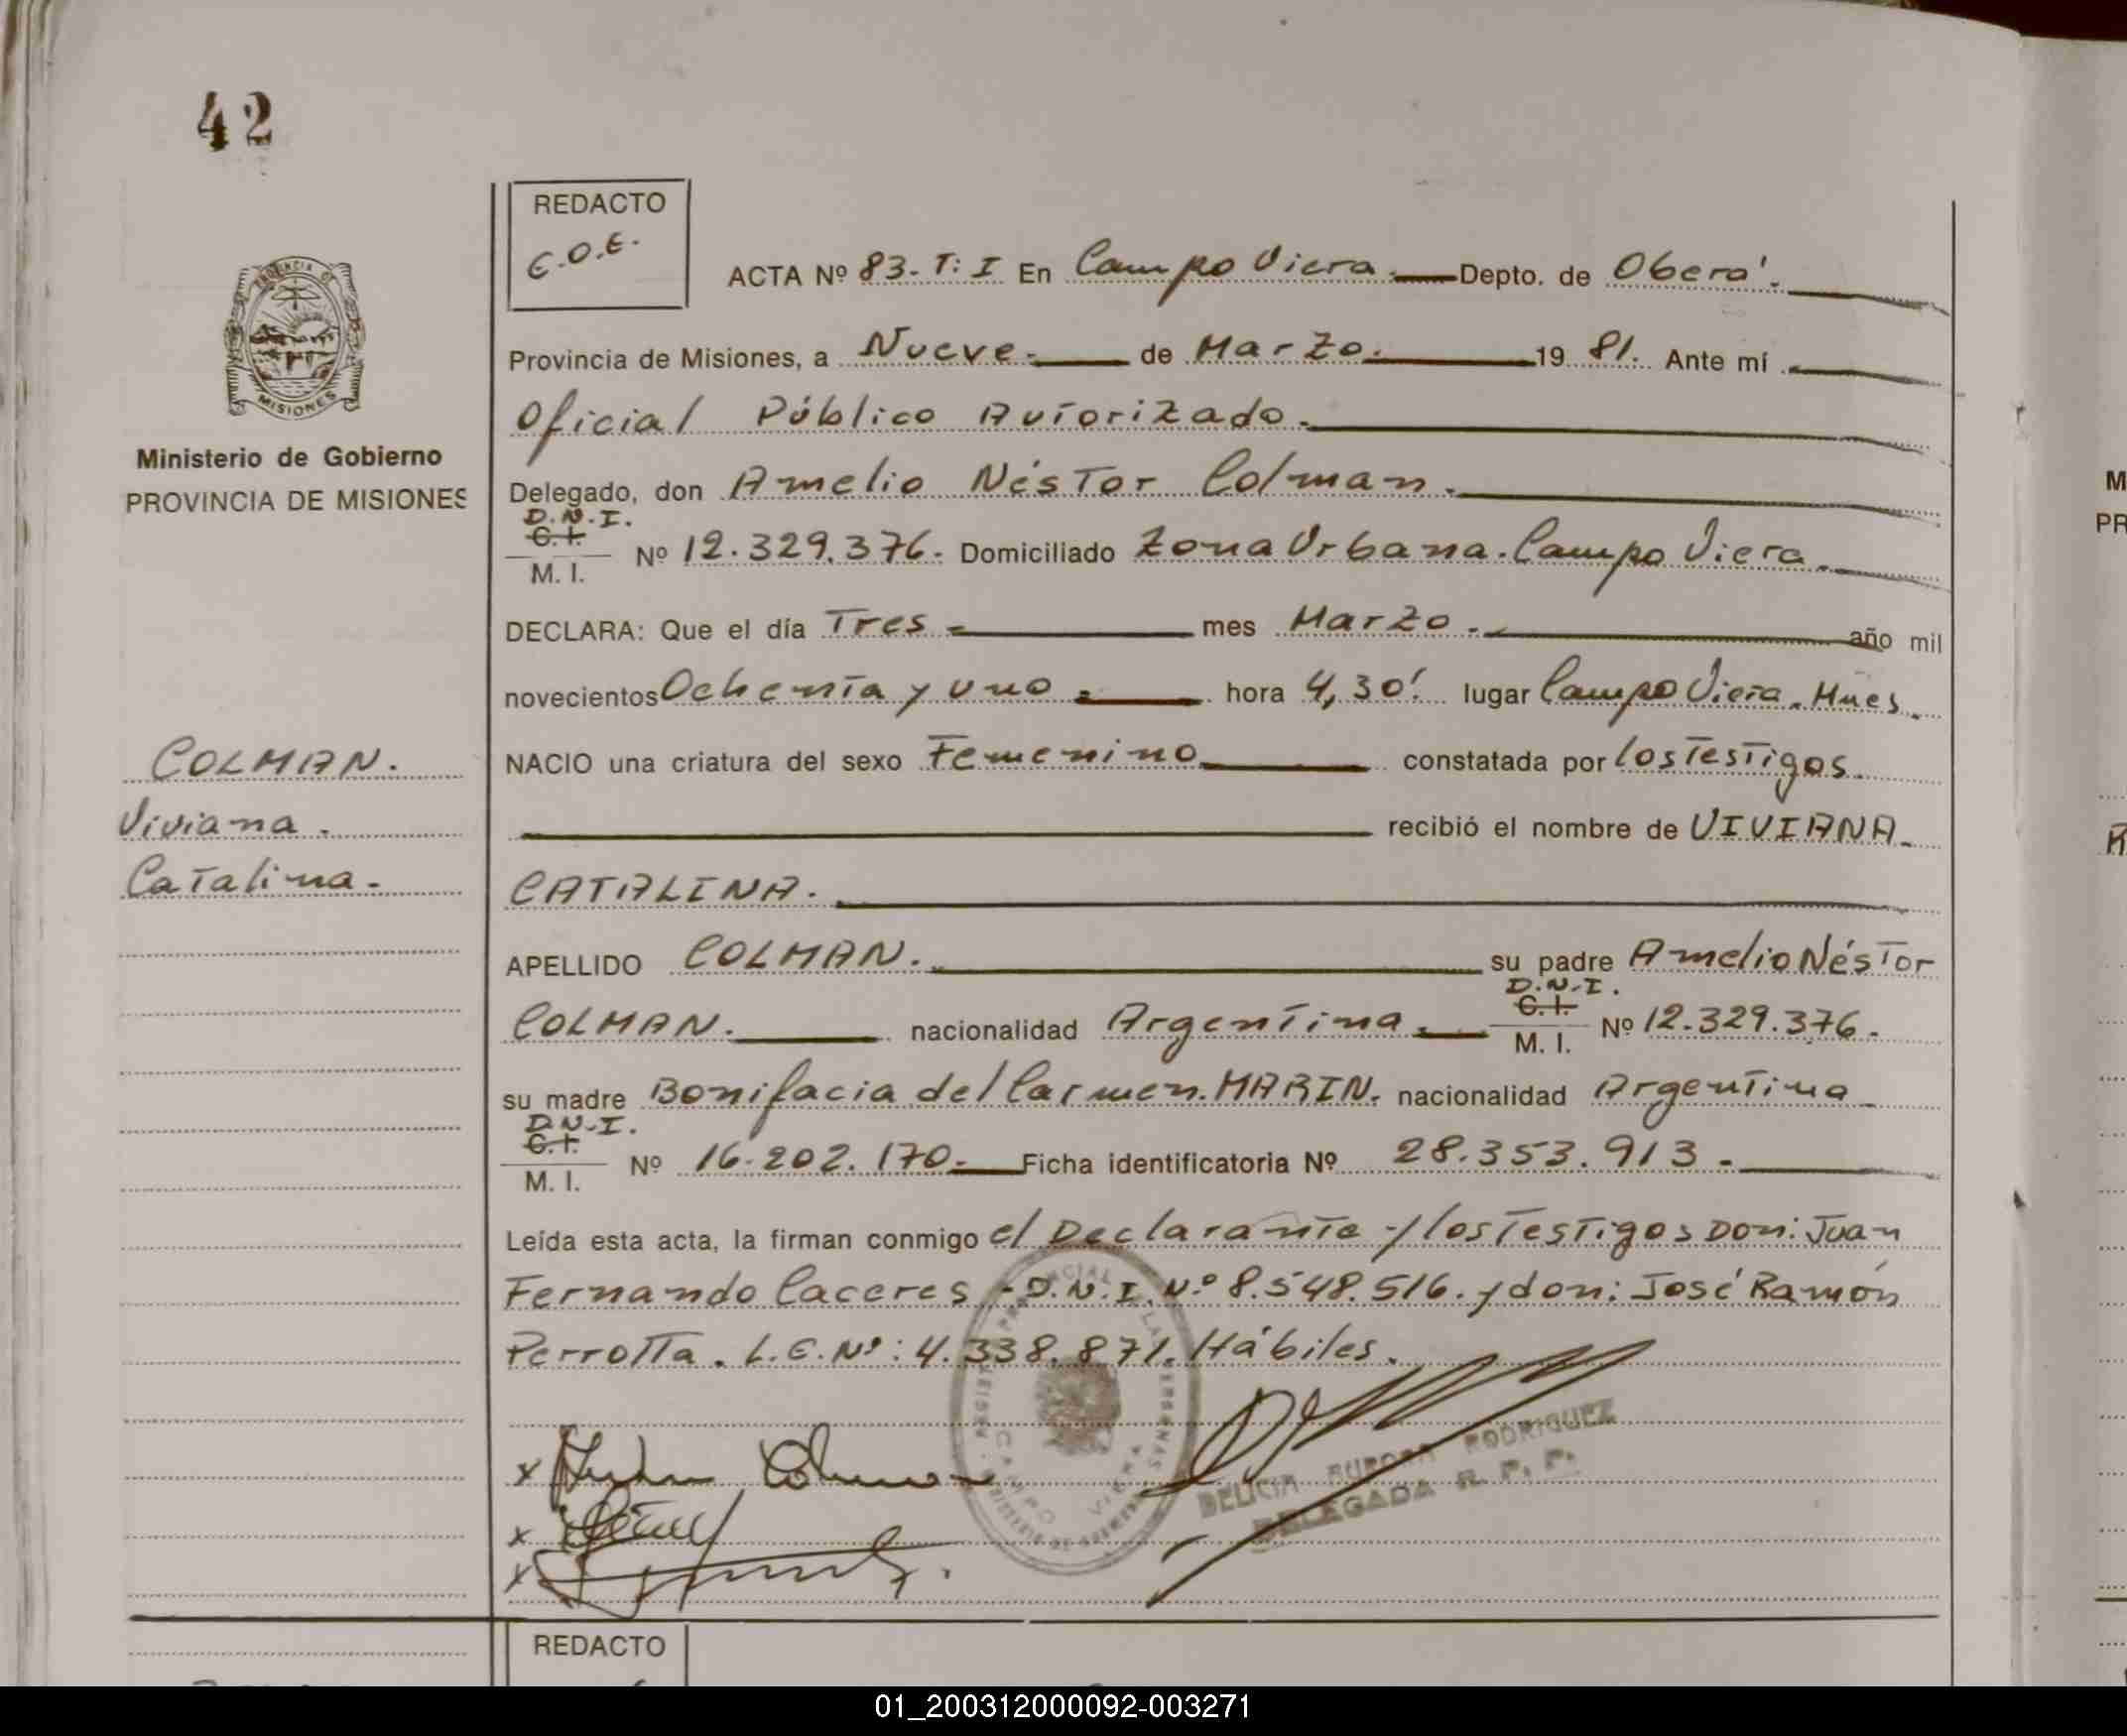 42
REDACTO
C.O.E.
ACTA Nº 83. T: I En Campo Viera. Depto. de Oberá.
Provincia de Misiones, a Nueve. de Marzo. 19 81. Ante mí
Oficial Público Autorizado.
Ministerio de Gobierno
PROVINCIA DE MISIONES
Delegado, don Amelio Néstor Colman.
D.N.I.
C.I.
M. I. Nº 12.329.376. Domiciliado Zona Urbana. Campo Viera.
DECLARA: Que el día Tres mes Marzo. año mil
novecientos Ochenta y uno. hora 4,30'. lugar Campo Viera. Mnes.
NACIO una criatura del sexo Femenino constatada por los Testigos.
recibió el nombre de VIVIANA
CATALINA.
COLMAN.
Viviana.
Catalina.
APELLIDO COLMAN. su padre Amelio Néstor
D.N.I.
C.I.
COLMAN. nacionalidad Argentina. M. I. Nº 12.329.376.
su madre Bonifacia del Carmen. MARIN. nacionalidad Argentina
D.N.I.
C.I.
M. I. Nº 16.202.170. Ficha identificatoria Nº 28.353.913.
Leída esta acta, la firman conmigo el Declarante y los Testigos Don: Juan
Fernando Caceres - D.N.I. Nº 8.548.516. y don: José Ramón
Perrotta. L.E. Nº: 4.338.871. Hábiles.
CAMPO VIERA
DELICIA AURORA RODRIGUEZ
DELEGADA R. P. P.
REDACTO
01_200312000092-003271